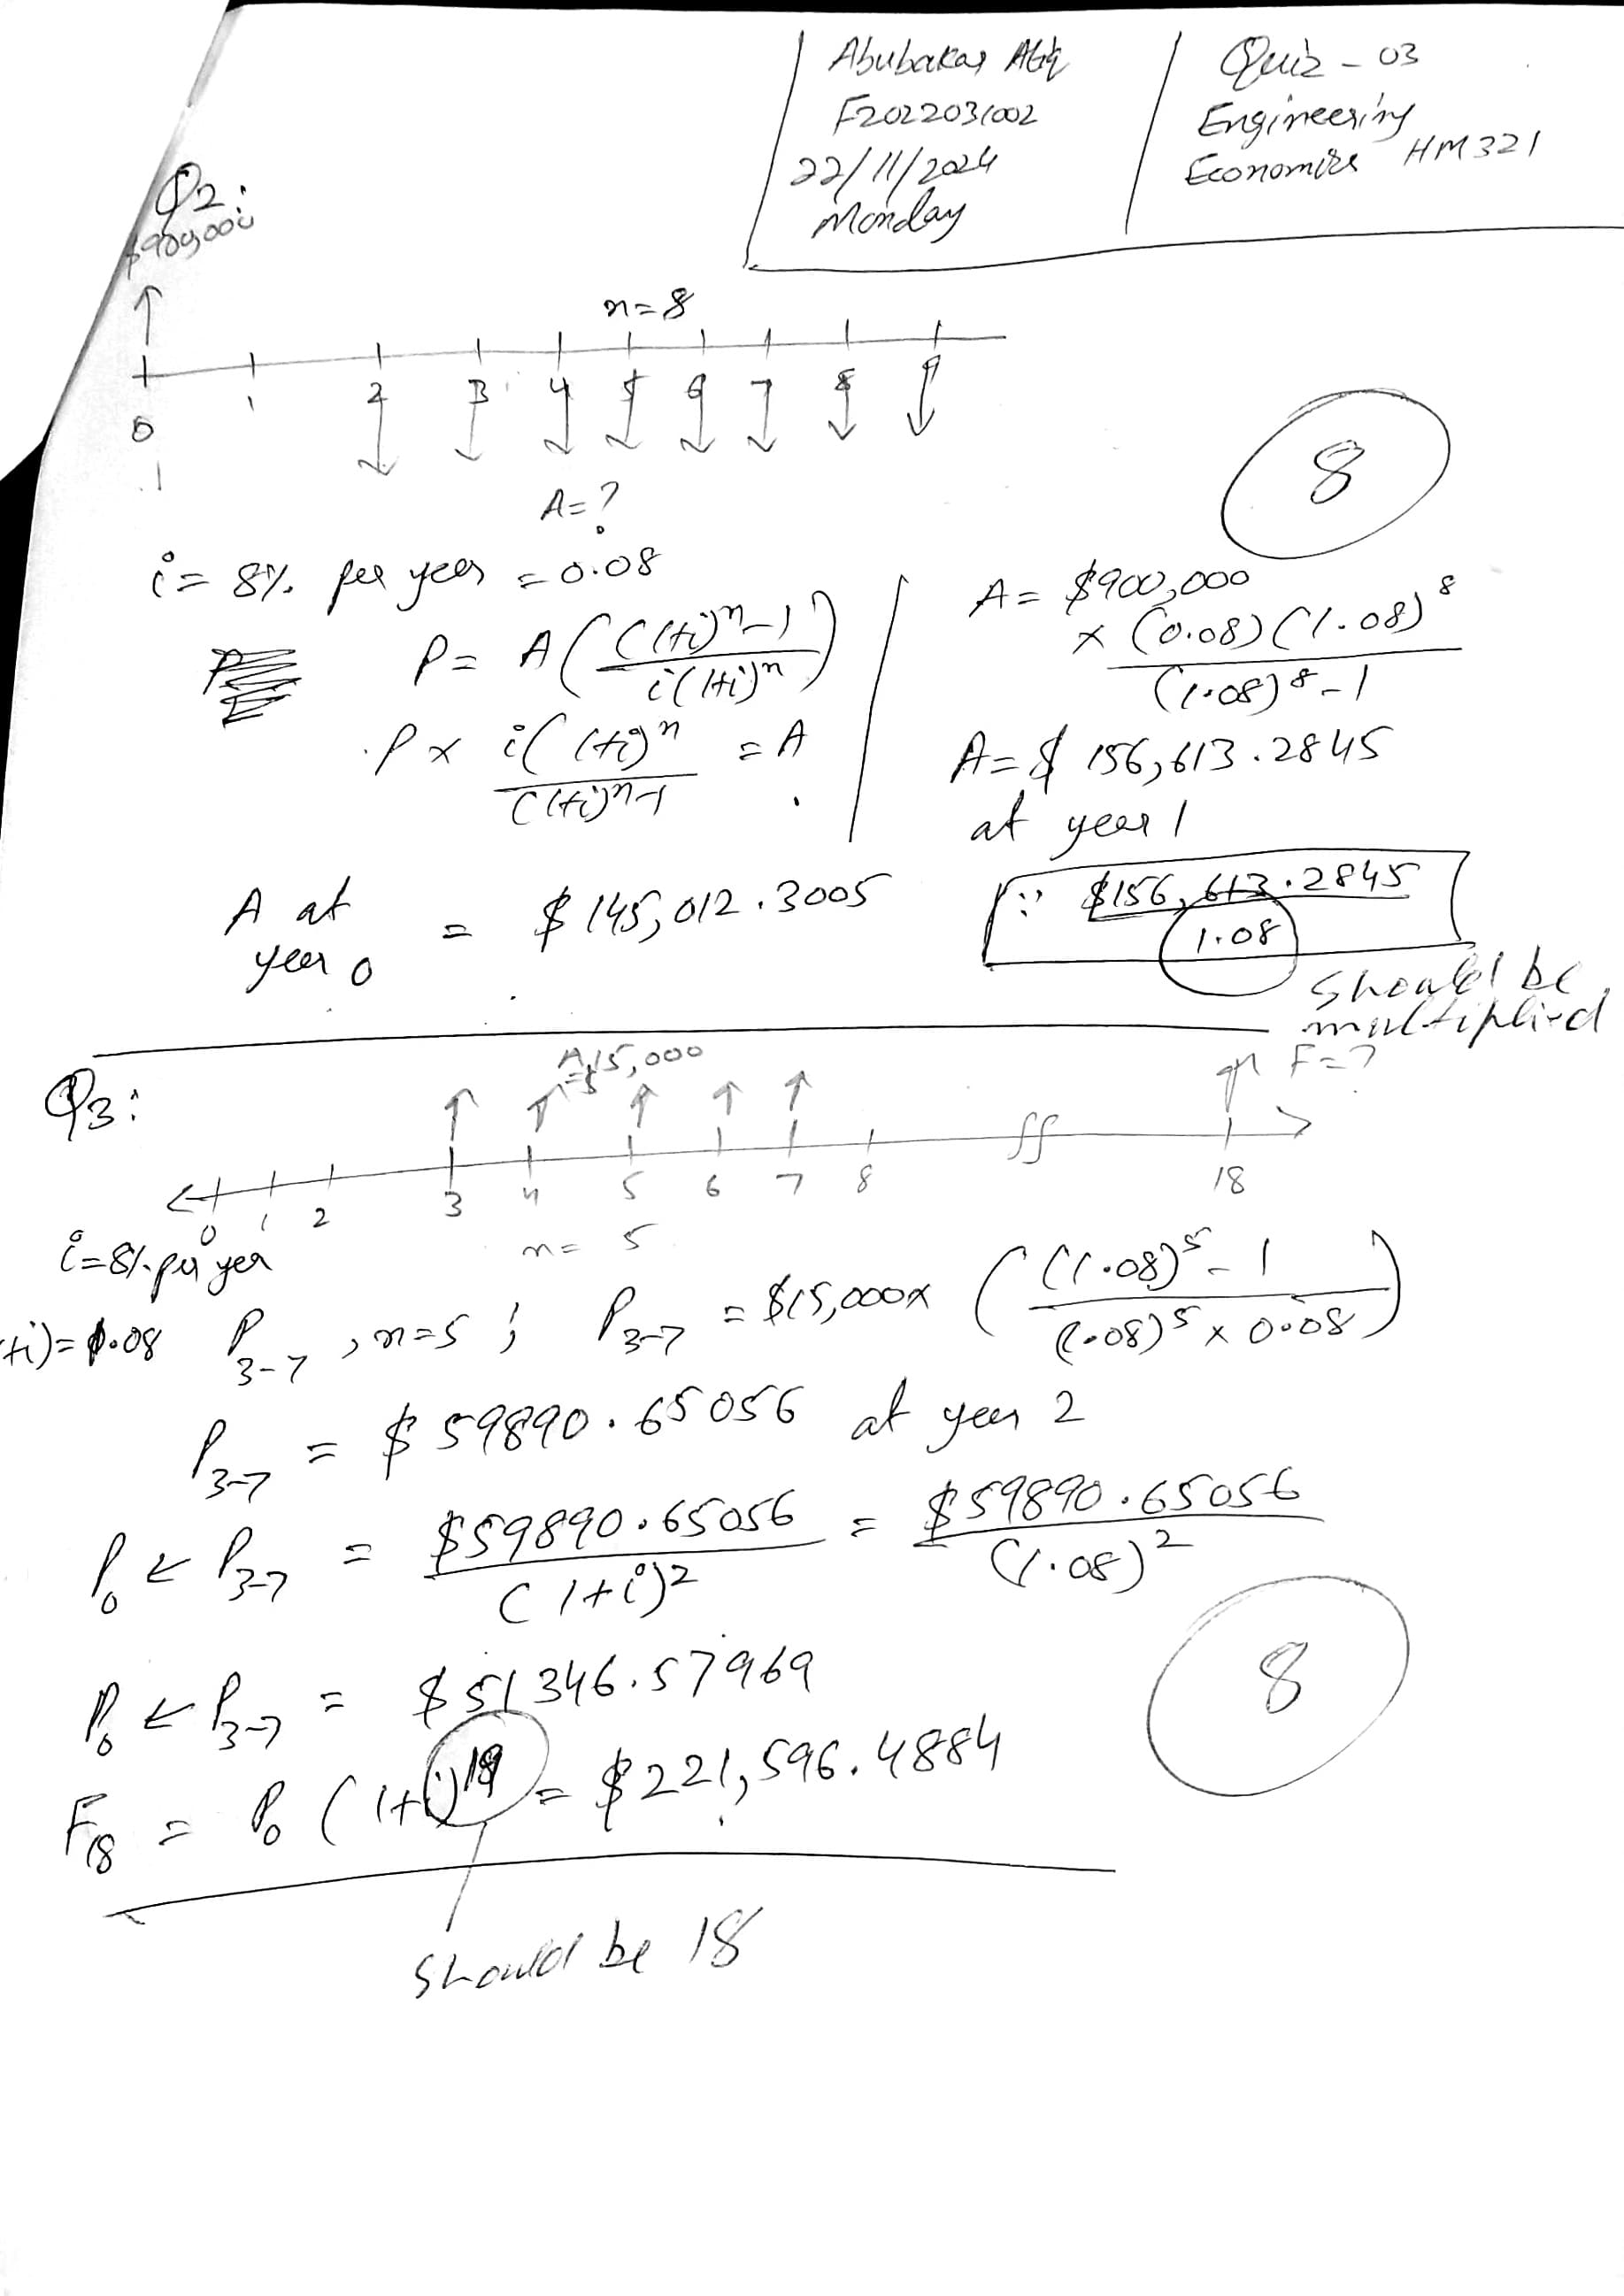 Abubakar Atiq
F2022031002
22/11/2024
Monday
Quiz - 03
Engineering
Economics HM321
Q2:
$900,000
n=8
0 1 2 3 4 5 6 7 8 9
A=?
8
i = 8% per year = 0.08
P = A(((1+i)^n-1)/(i(1+i)^n))
P x (i(1+i)^n)/((1+i)^n-1) = A
A = $900,000
x ((0.08)(1.08)^8)/((1.08)^8-1)
A = $156,613.2845
at year 1
A at year 0 = $145,012.3005
∵ $156,613.2845/1.08
should be
multiplied
Q3:
A=$15,000
F=?
0 1 2 3 4 5 6 7 8 18
n= 5
i=8% per year
+i)=1.08 P3-7 , n=5 ; P3-7 = $15,000x (((1.08)^5-1)/((1.08)^5 x 0.08))
P3-7 = $59890.65056 at year 2
P0 ← P3-7 = $59890.65056/(1+i)^2 = $59890.65056/(1.08)^2
P0 ← P3-7 = $51346.57969
8
F18 = P0 (1+i)^19 = $221,596.4884
should be 18